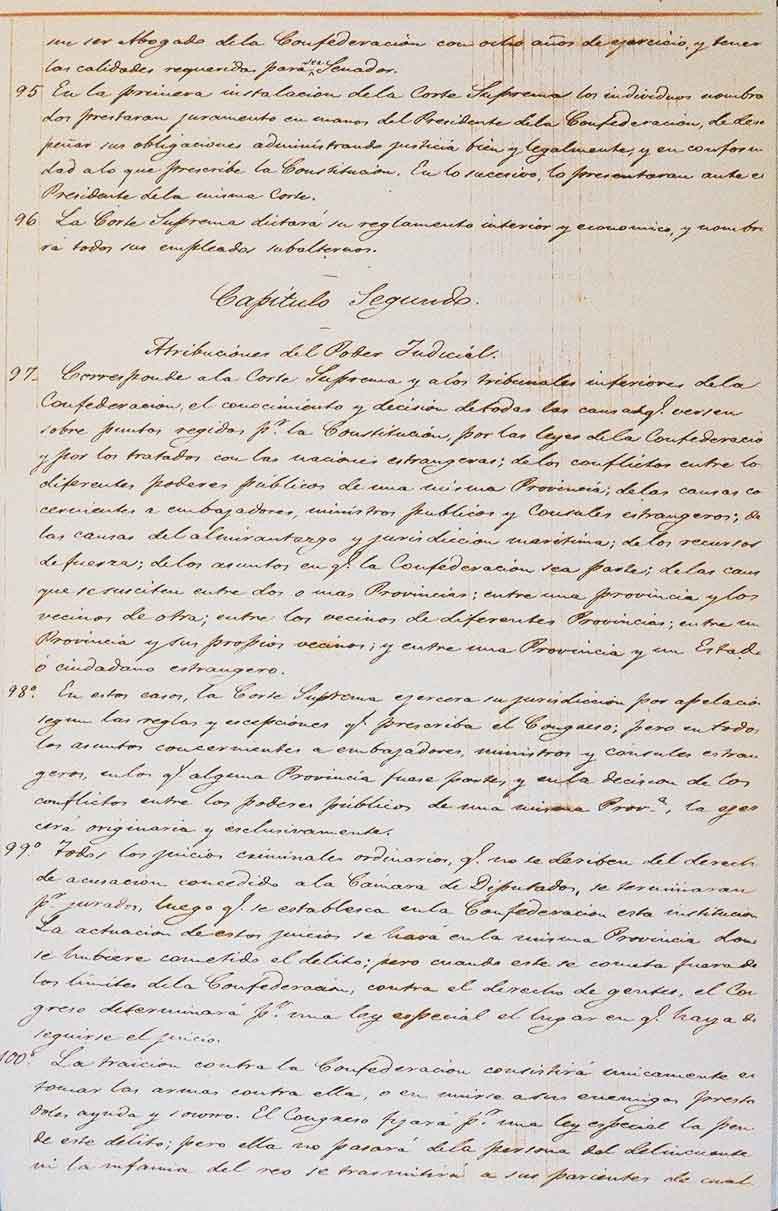 sin ser Abogado dela Confederación con ocho años de ejercicio, y tener
las calidades requeridas para ser Senador.
95 En la primera instalación dela Corte Suprema los individuos nombra
dos prestaran juramento en manos del Presidente dela Confederación, de dese
peñar sus obligaciones administrando justicia bien y legalmente, y en conform
dad a lo que prescribe la Constitución. En lo sucesivo, lo presentaran ante e
Presidente dela misma Corte.
96 La Corte Suprema dictará su reglamento interior y economico, y nombr
rá todos sus empleados subalternos.
Capítulo Segundo.
Atribuciónes del Poder Judicial.
97. Corresponde ala Corte Suprema y alos tribunales inferiores dela
Confederación, el conocimiento y decisión detodas las causas q.e versen
sobre puntos regidos p.r la Constitución, por las leyes dela Confederació
y por los tratados con las naciones estrangeras; delos conflictos entre lo
diferentes poderes públicos de una misma Provincia; delas causas co
cernientes a embajadores, ministros publicos y Consules estrangeros; de
las causas del almirantazgo y jurisdiccion maritima; delos recursos
defuerza; delos asuntos en q.e la Confederación sea parte; delas caus
que se susciten entre dos o mas Provincias; entre una provincia y los
vecinos de otra; entre los vecinos de diferentes Provincias; entre un
Provincia y sus propios vecinos; y entre una Provincia y un Estado
ó ciudadano estrangero.
98º. En estos casos, la Corte Suprema ejercera su jurisdicción por apelació
segun las reglas y escepciones q.e prescriba el Congreso; pero en todos
los asuntos concernientes a embajadores, ministros y consules estran
geros, enlos q.e alguna Provincia fuese parte, y enla decision de los
conflictos entre los poderes públicos de una misma Prov.a, la ejer
cerá originaria y esclusivamente.
99º. Todos los juicios criminales ordinarios, q.e no se deriben del derech
de acusación concedido ala Cámara de Diputados, se terminaran
p.r jurados, luego q.e se establesca enla Confederacion esta institucion
La actuacion de estos juicios se hará enla misma Provincia don
se hubiere cometido el delito; pero cuando este se cometa fuera de
los límites dela Confederacion, contra el derecho de gentes, el Con
greso determinará p.r una ley especial el lugar en q.e haya de
seguirse el juicio.
100º. La traicion contra la Confederacion consistirá unicamente en
tomar las armas contra ella, o en unirse asus enemigos presta
doles ayuda y socorro. El Congreso fijará p.r una ley especial la pen
de este delito; pero ella no pasará dela persona del delincuente
ni la infamia del reo se trasmitirá a sus parientes de cual